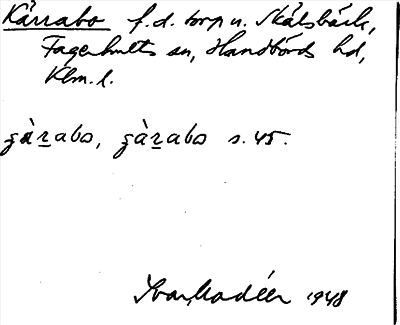 Kärrabo f.d. torp u. Skälsbäck,
Fagerhults sn, Handbörds hd,
Klm. l.
s. 45.
Ivar Modéer 1948